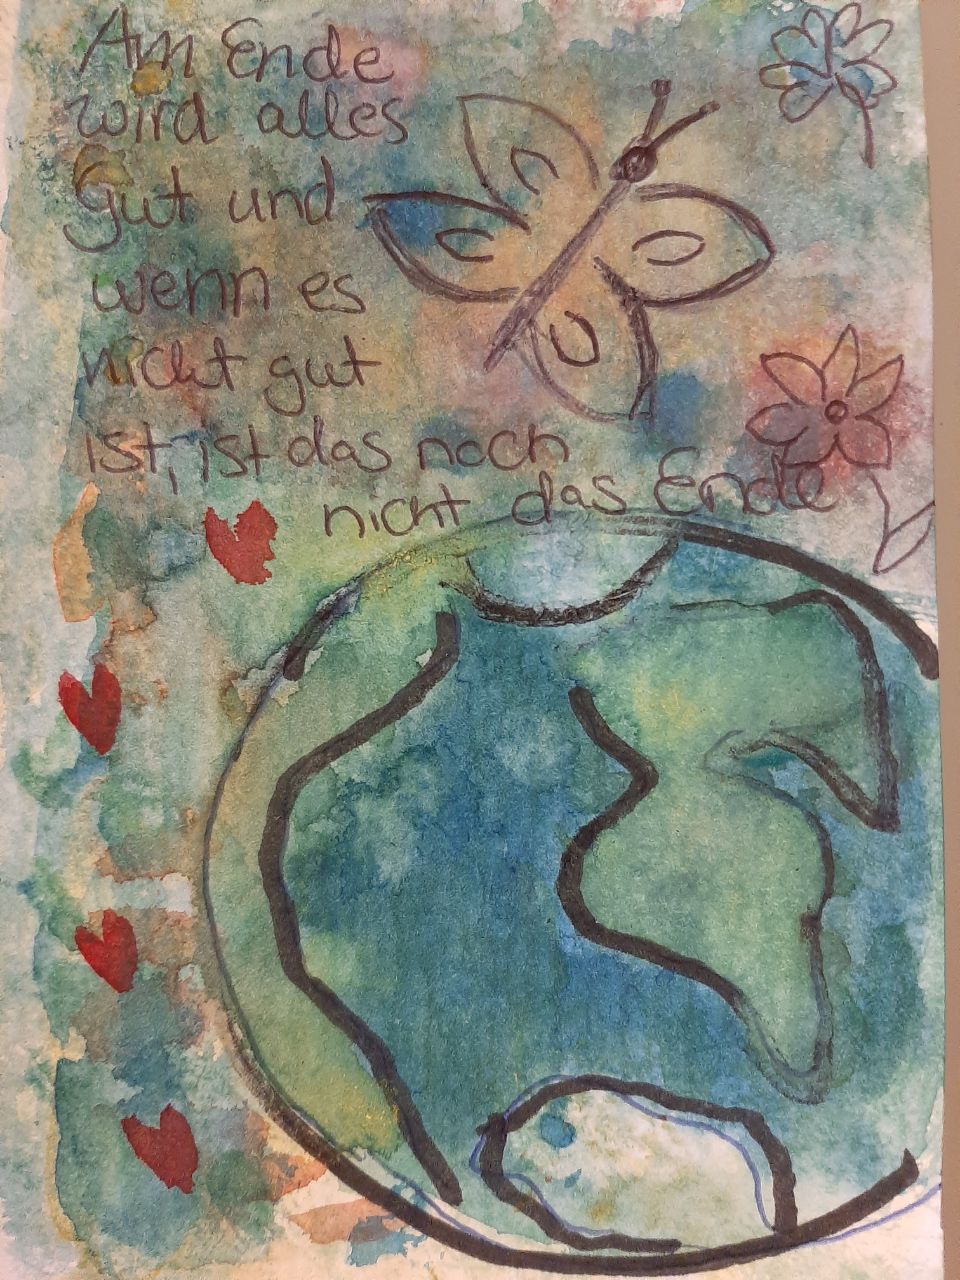 Am Ende
wird alles
gut und
wenn es
nicht gut
ist, ist das noch
nicht das Ende